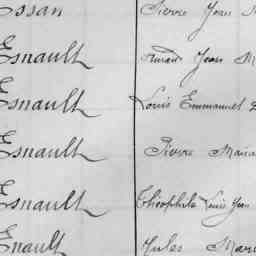 Essan Pierre Jean
Esnault Jean M
Esnault Louis Emmanuel
Esnault Pierre Maria
Esnault Théophile Louis Jean
Enault Jules Mari